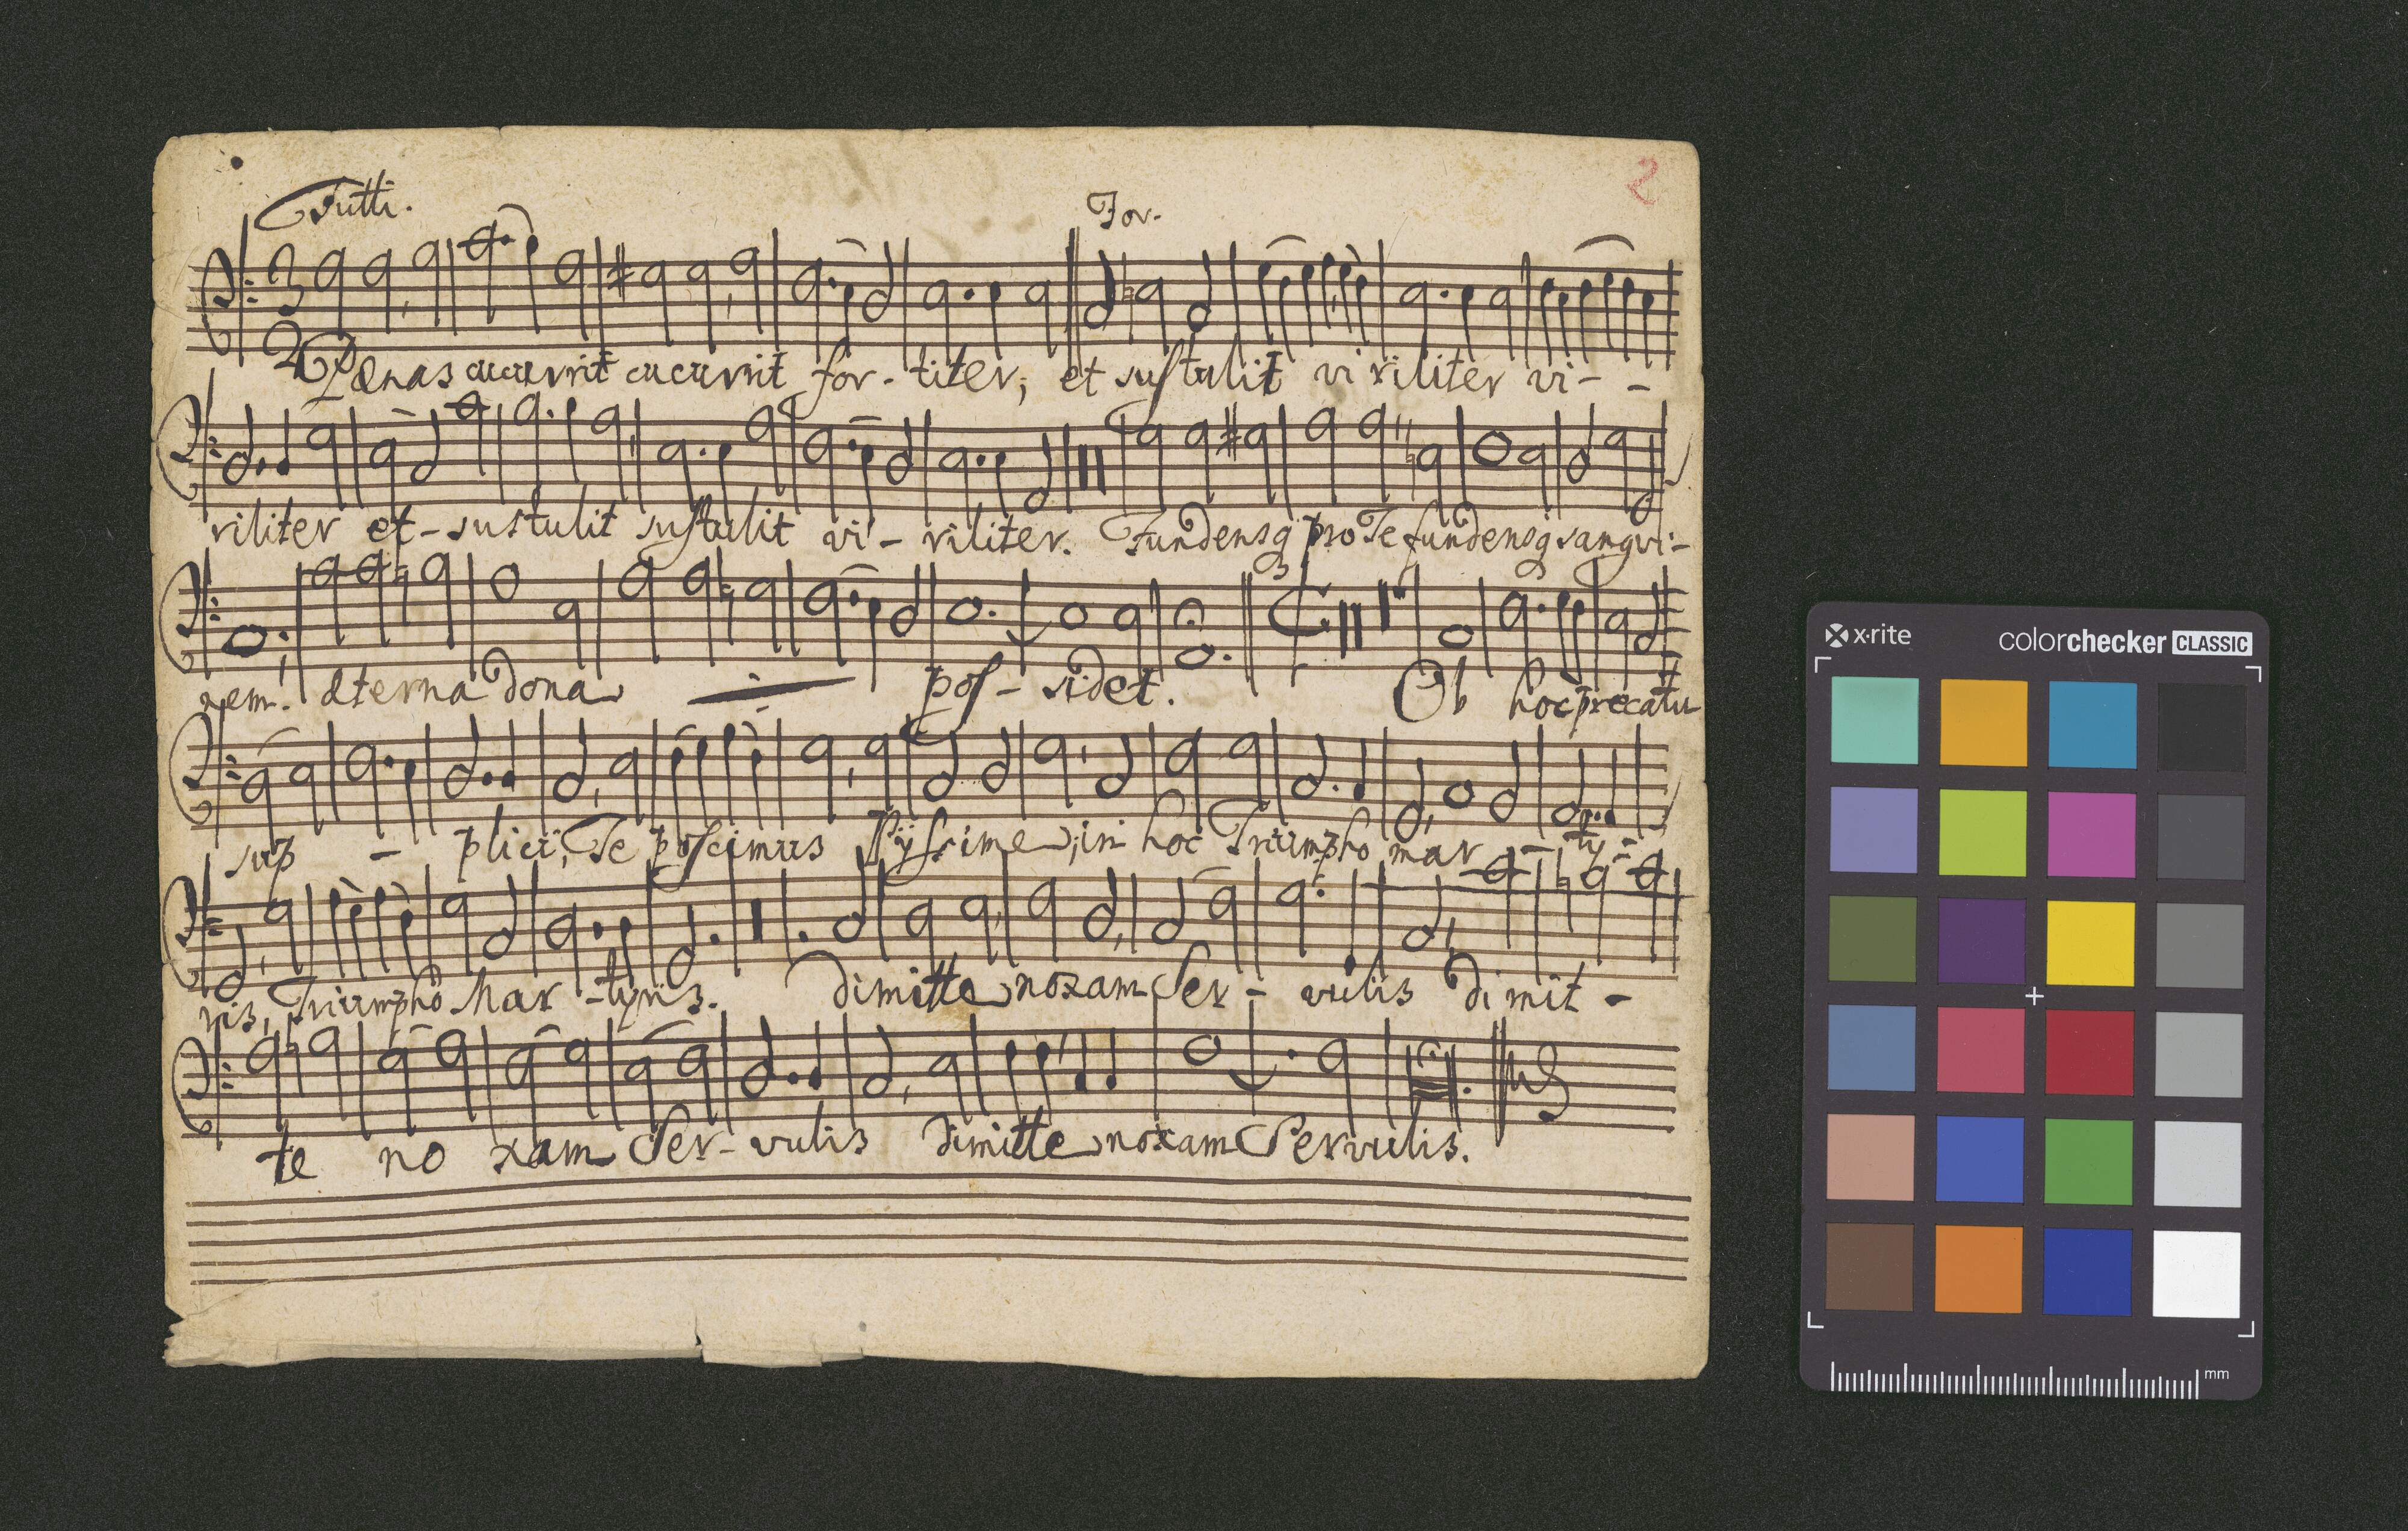 2
Tutti. For.
Pænas cucurrit cucurrit for - titer, et sustulit viriliter vi - -
riliter et - sustulit sustulit vi - riliter. Fundensq pro Te fundensq sangvi -
nem. æterna dona pos - sidet. Ob hoc precatu
sup - plici, Te poscimus Pijssime, in hoc Triumpho mar - ty -
ris, Triumpho Mar - tyris. Dimitte noxam Ser - vulis Dimit -
te no xam Ser - vulis Dimitte noxam Servulis.
x·rite colorchecker CLASSIC
mm